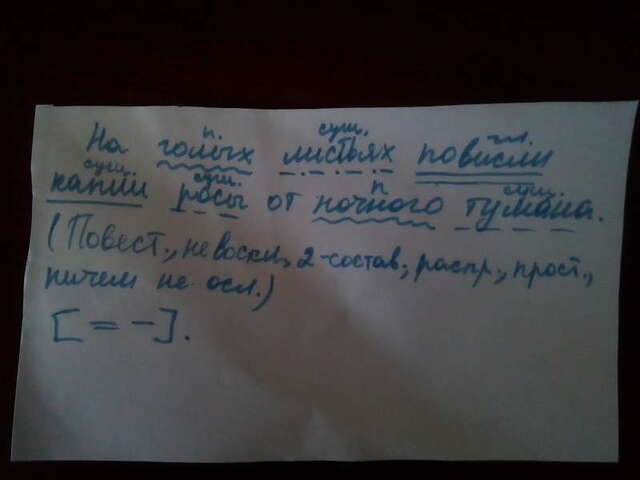 п. сущ. гл.
На голых листьях повисли
сущ. сущ. п сущ.
капли росы от ночного тумана.
(Повест., не воскл., 2-состав., распр., прост.,
ничем не осл.)
[= -].